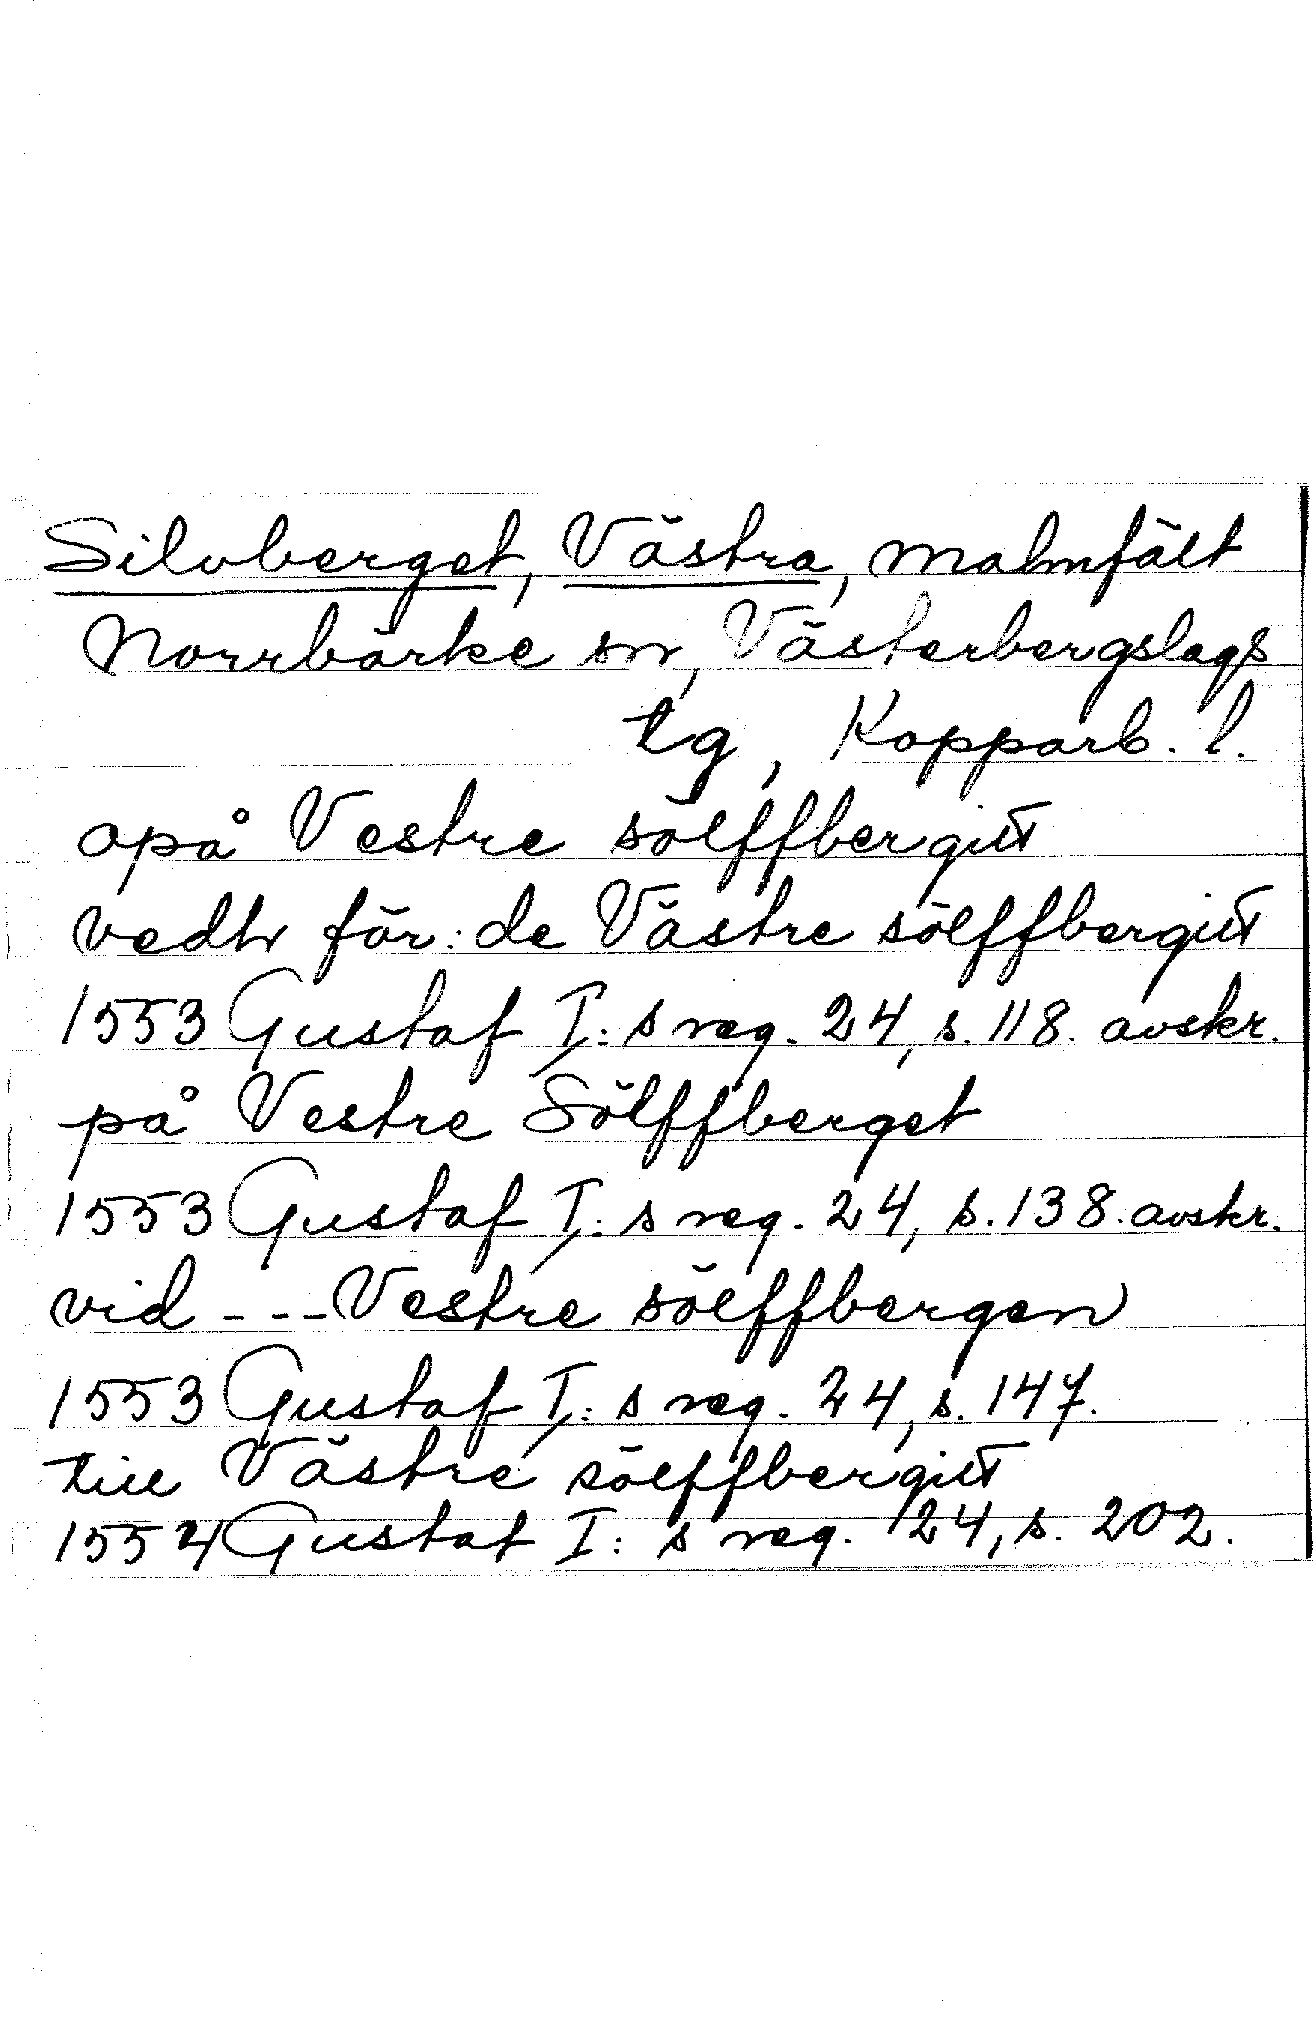 Silvberget, Västra, malmfält
Norrbärke sn, Västerbergslags
tg, Kopparb. l.
opå Vestre sölffbergitt
vedtr för: de Västre sölffbergitt
1553 Gustaf I: s reg. 24, s. 118. avskr.
på Vestre Sölffberget
1553 Gustaf I: s reg. 24, s. 138. avskr.
vid - - - Vestre sölffbergen
1553 Gustaf I: s reg. 24, s. 147.
till Västre sölffbergitt
1554 Gustaf I: s reg. 24, s. 202.